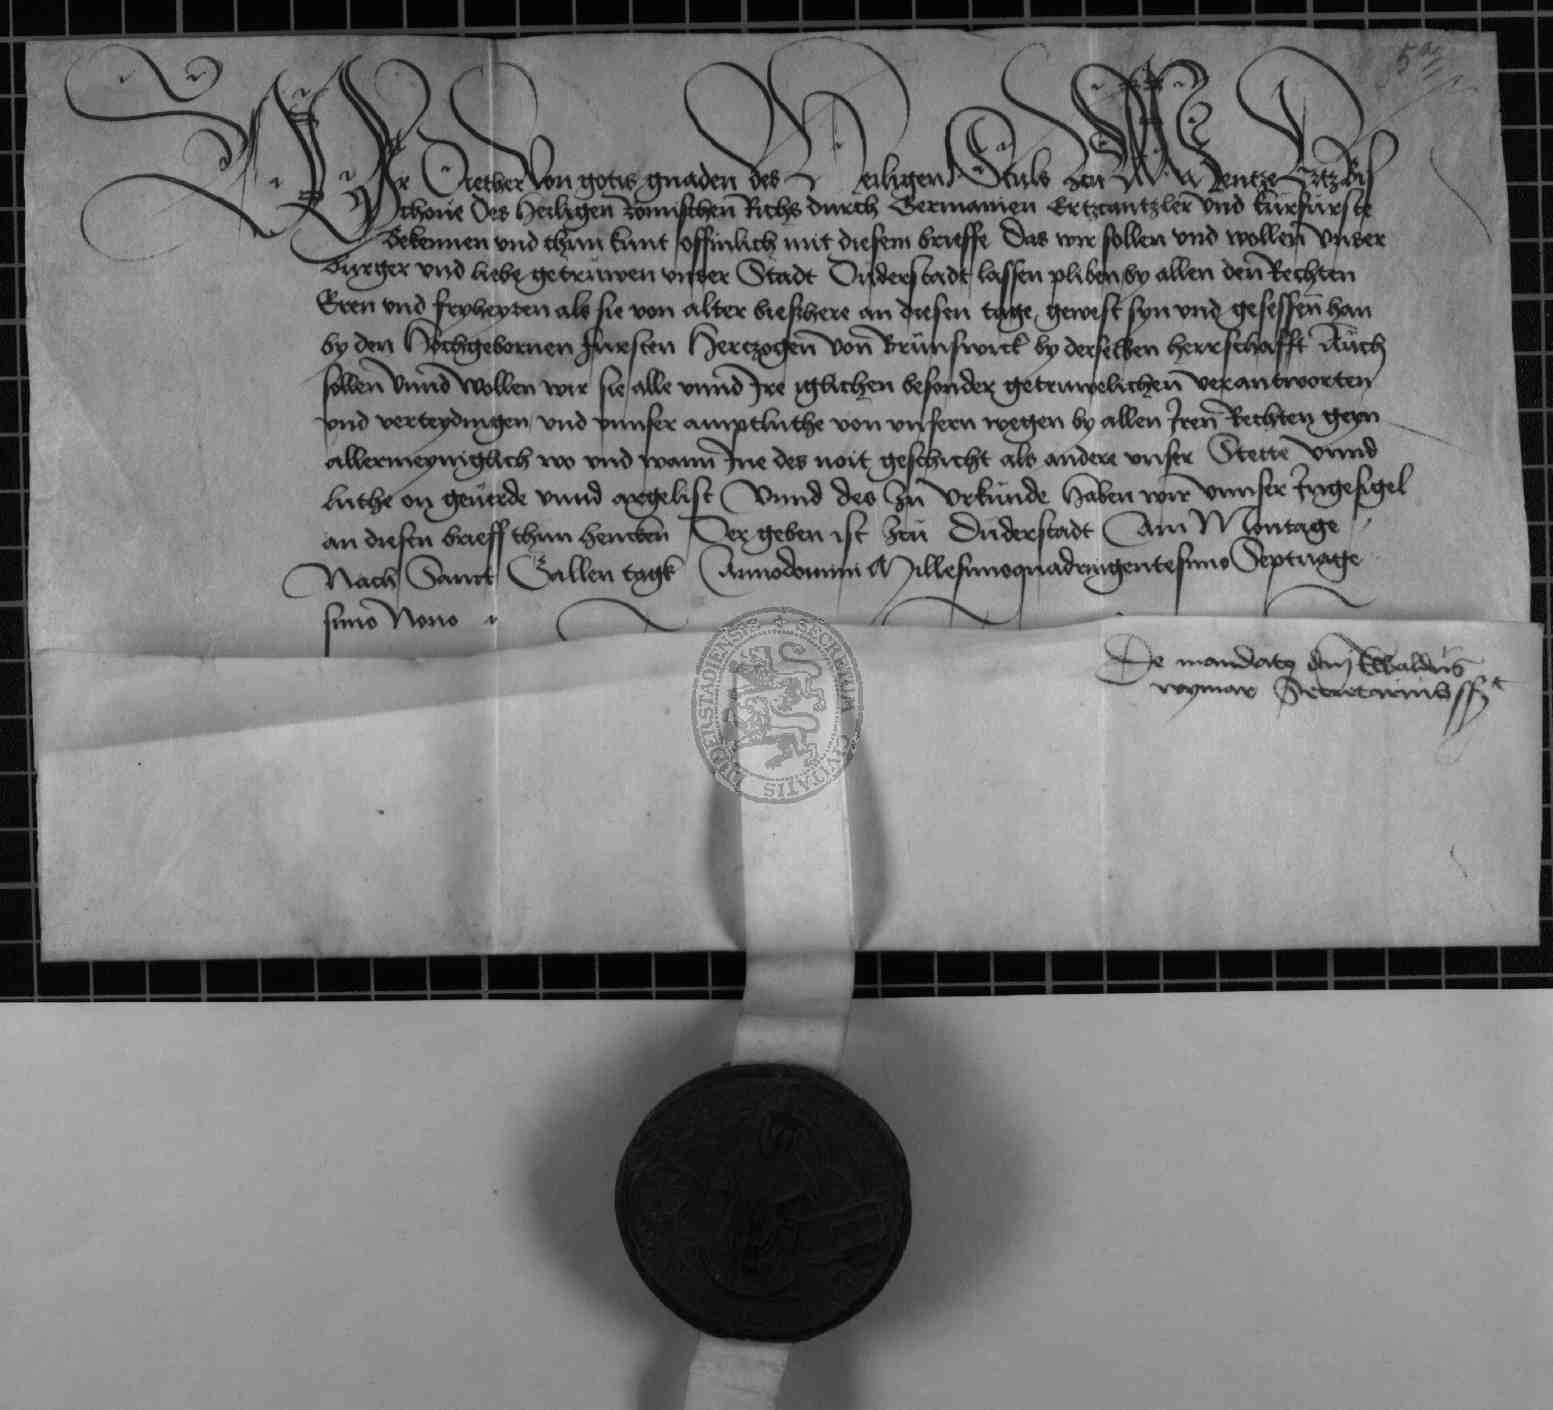 Wir Diether von gotis gnaden des Heiligen Stuls zcu Mentze Ertzbis
schoue des heiligen Romischen Richs durch Germanien Ertzcantzler vnd kurfurste
Bekennen vnd thun kunt offinlich mit diesem brieffe Das wir sollen vnd wollen vnser
burger vnd liebe getruwen vnser Stadt Duderstadt lassen pliben by allen den Rechten
Eren vnd fryheyten als sie von alter bieschere an diesen tage gewest syn vnd gesessen han
by den Hochgebornen fursten Hertzogen von Brunswick by derselben herrschafft Auch
sollen vnnd wollen wir sie alle vnnd Ire iglichen besonder getruwelichen verantworten
vnd verteydingen vnd vnnser amptluthe von vnsern wegen by allen Iren Rechten geyn
allermeyniglich wo vnd wann Ine des noit geschicht als andere vnser Stette vnnd
luthe on geuerde vnnd argelist Vnnd des zu Vrkunde haben wir vnnser Ingesigel
an diesen brieff thun hencken Der geben ist zcu Duderstadt Am Montage
Nach Sanct Gallen tagk Annodomini Millesimoquadringentesimo Septuage
simo Nono
De mandato dni Ewaldus
wymar Secretarius sst
SECRETVM CIVITATIS DVDERSTADIENSIS